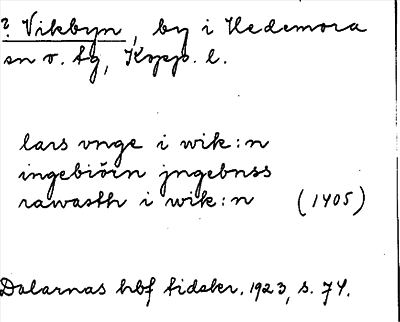 ? Vikbyn, by i Hedemora
sn o. tg, Kopp. l.
lars vnge i wik:n
ingebiörn jngebnss
rawasth i wik:n (1405)
Dalarnas hbf tidskr. 1923, s. 74.